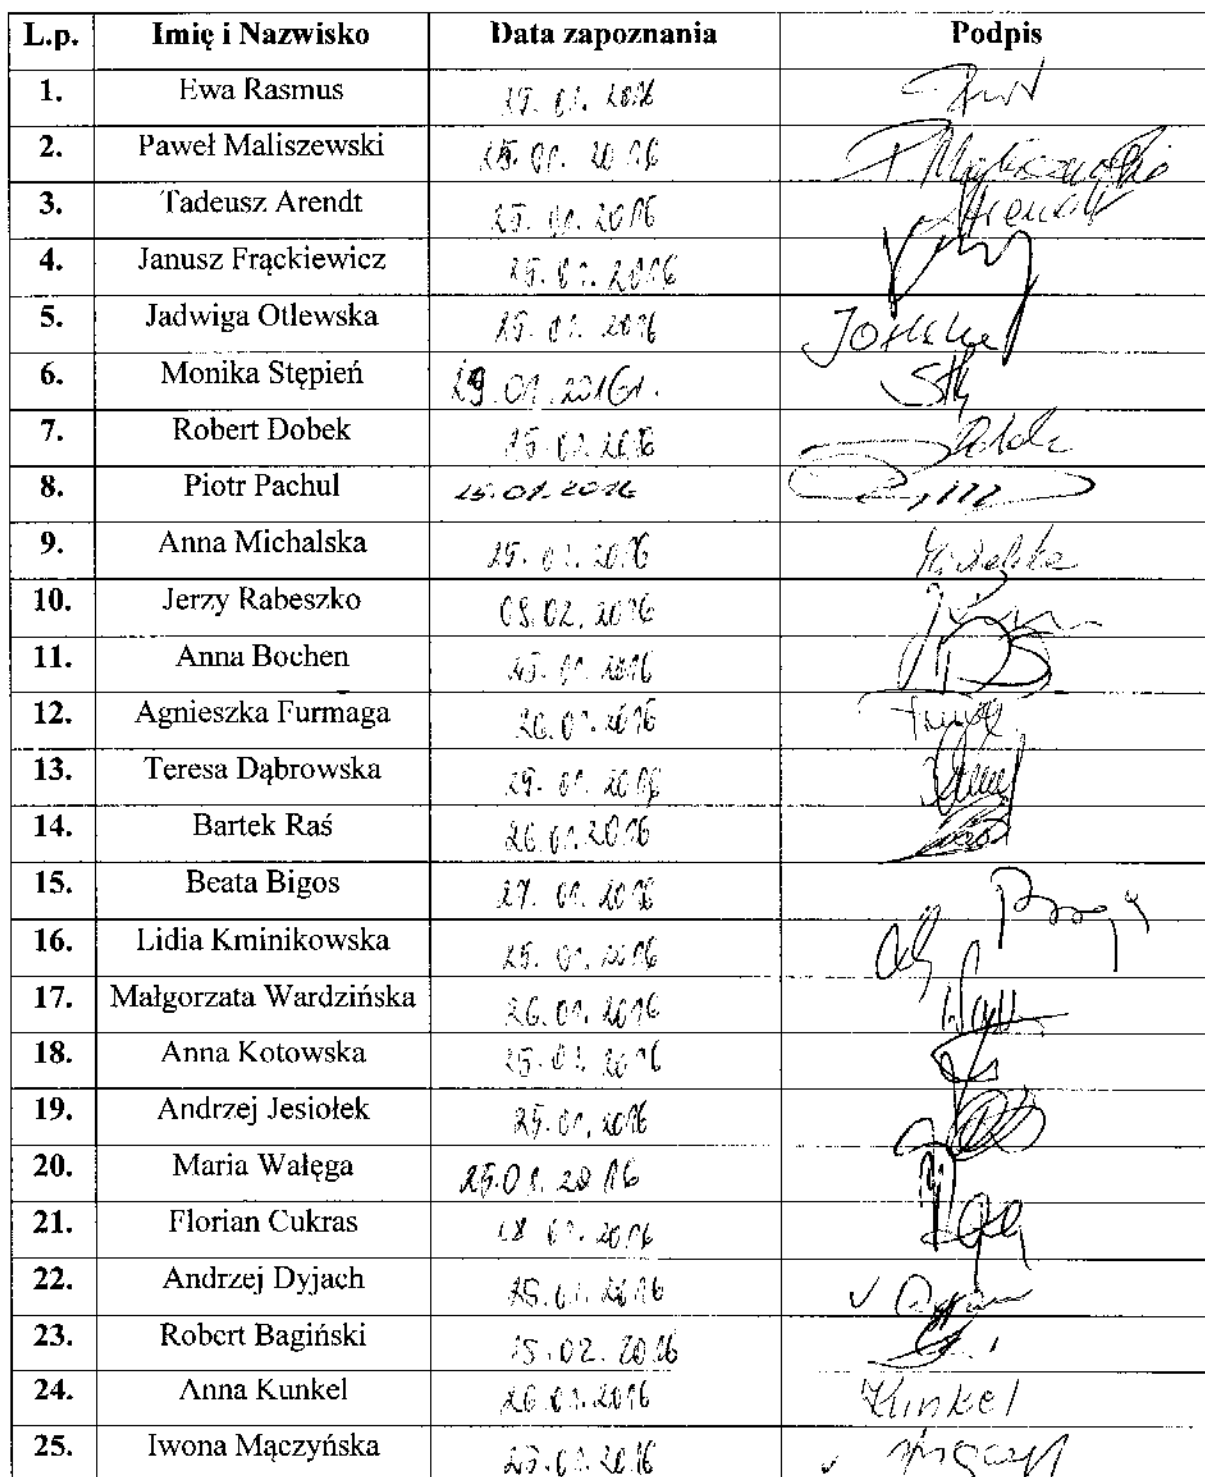 L.p. Imię i Nazwisko Data zapoznania Podpis
1. Ewa Rasmus 29.01.2016
2. Paweł Maliszewski 25.01.2016 P Maliszewski
3. Tadeusz Arendt 25.01.2016 Arendt
4. Janusz Frąckiewicz 25.01.2016
5. Jadwiga Otlewska 25.01.2016
6. Monika Stępień 29.01.2016r.
7. Robert Dobek 25.01.2016
8. Piotr Pachul 25.01.2016
9. Anna Michalska 25.01.2016
10. Jerzy Rabeszko 08.02.2016
11. Anna Bochen 25.01.2016
12. Agnieszka Furmaga 26.01.2016
13. Teresa Dąbrowska 29.01.2016
14. Bartek Raś 26.01.2016
15. Beata Bigos 27.01.2016
16. Lidia Kminikowska 25.01.2016
17. Małgorzata Wardzińska 26.01.2016
18. Anna Kotowska 25.01.2016
19. Andrzej Jesiołek 25.01.2016
20. Maria Wałęga 25.01.2016
21. Florian Cukras 28.01.2016
22. Andrzej Dyjach 25.01.2016
23. Robert Bagiński 15.02.2016
24. Anna Kunkel 26.01.2016 Kunkel
25. Iwona Mączyńska 25.01.2016